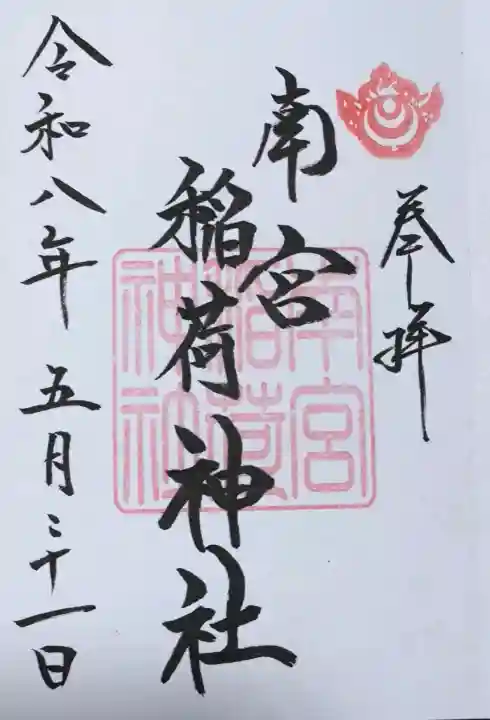 奉拝
南宮
稲荷神社
令和八年五月三十一日
南宮
稲荷
神社